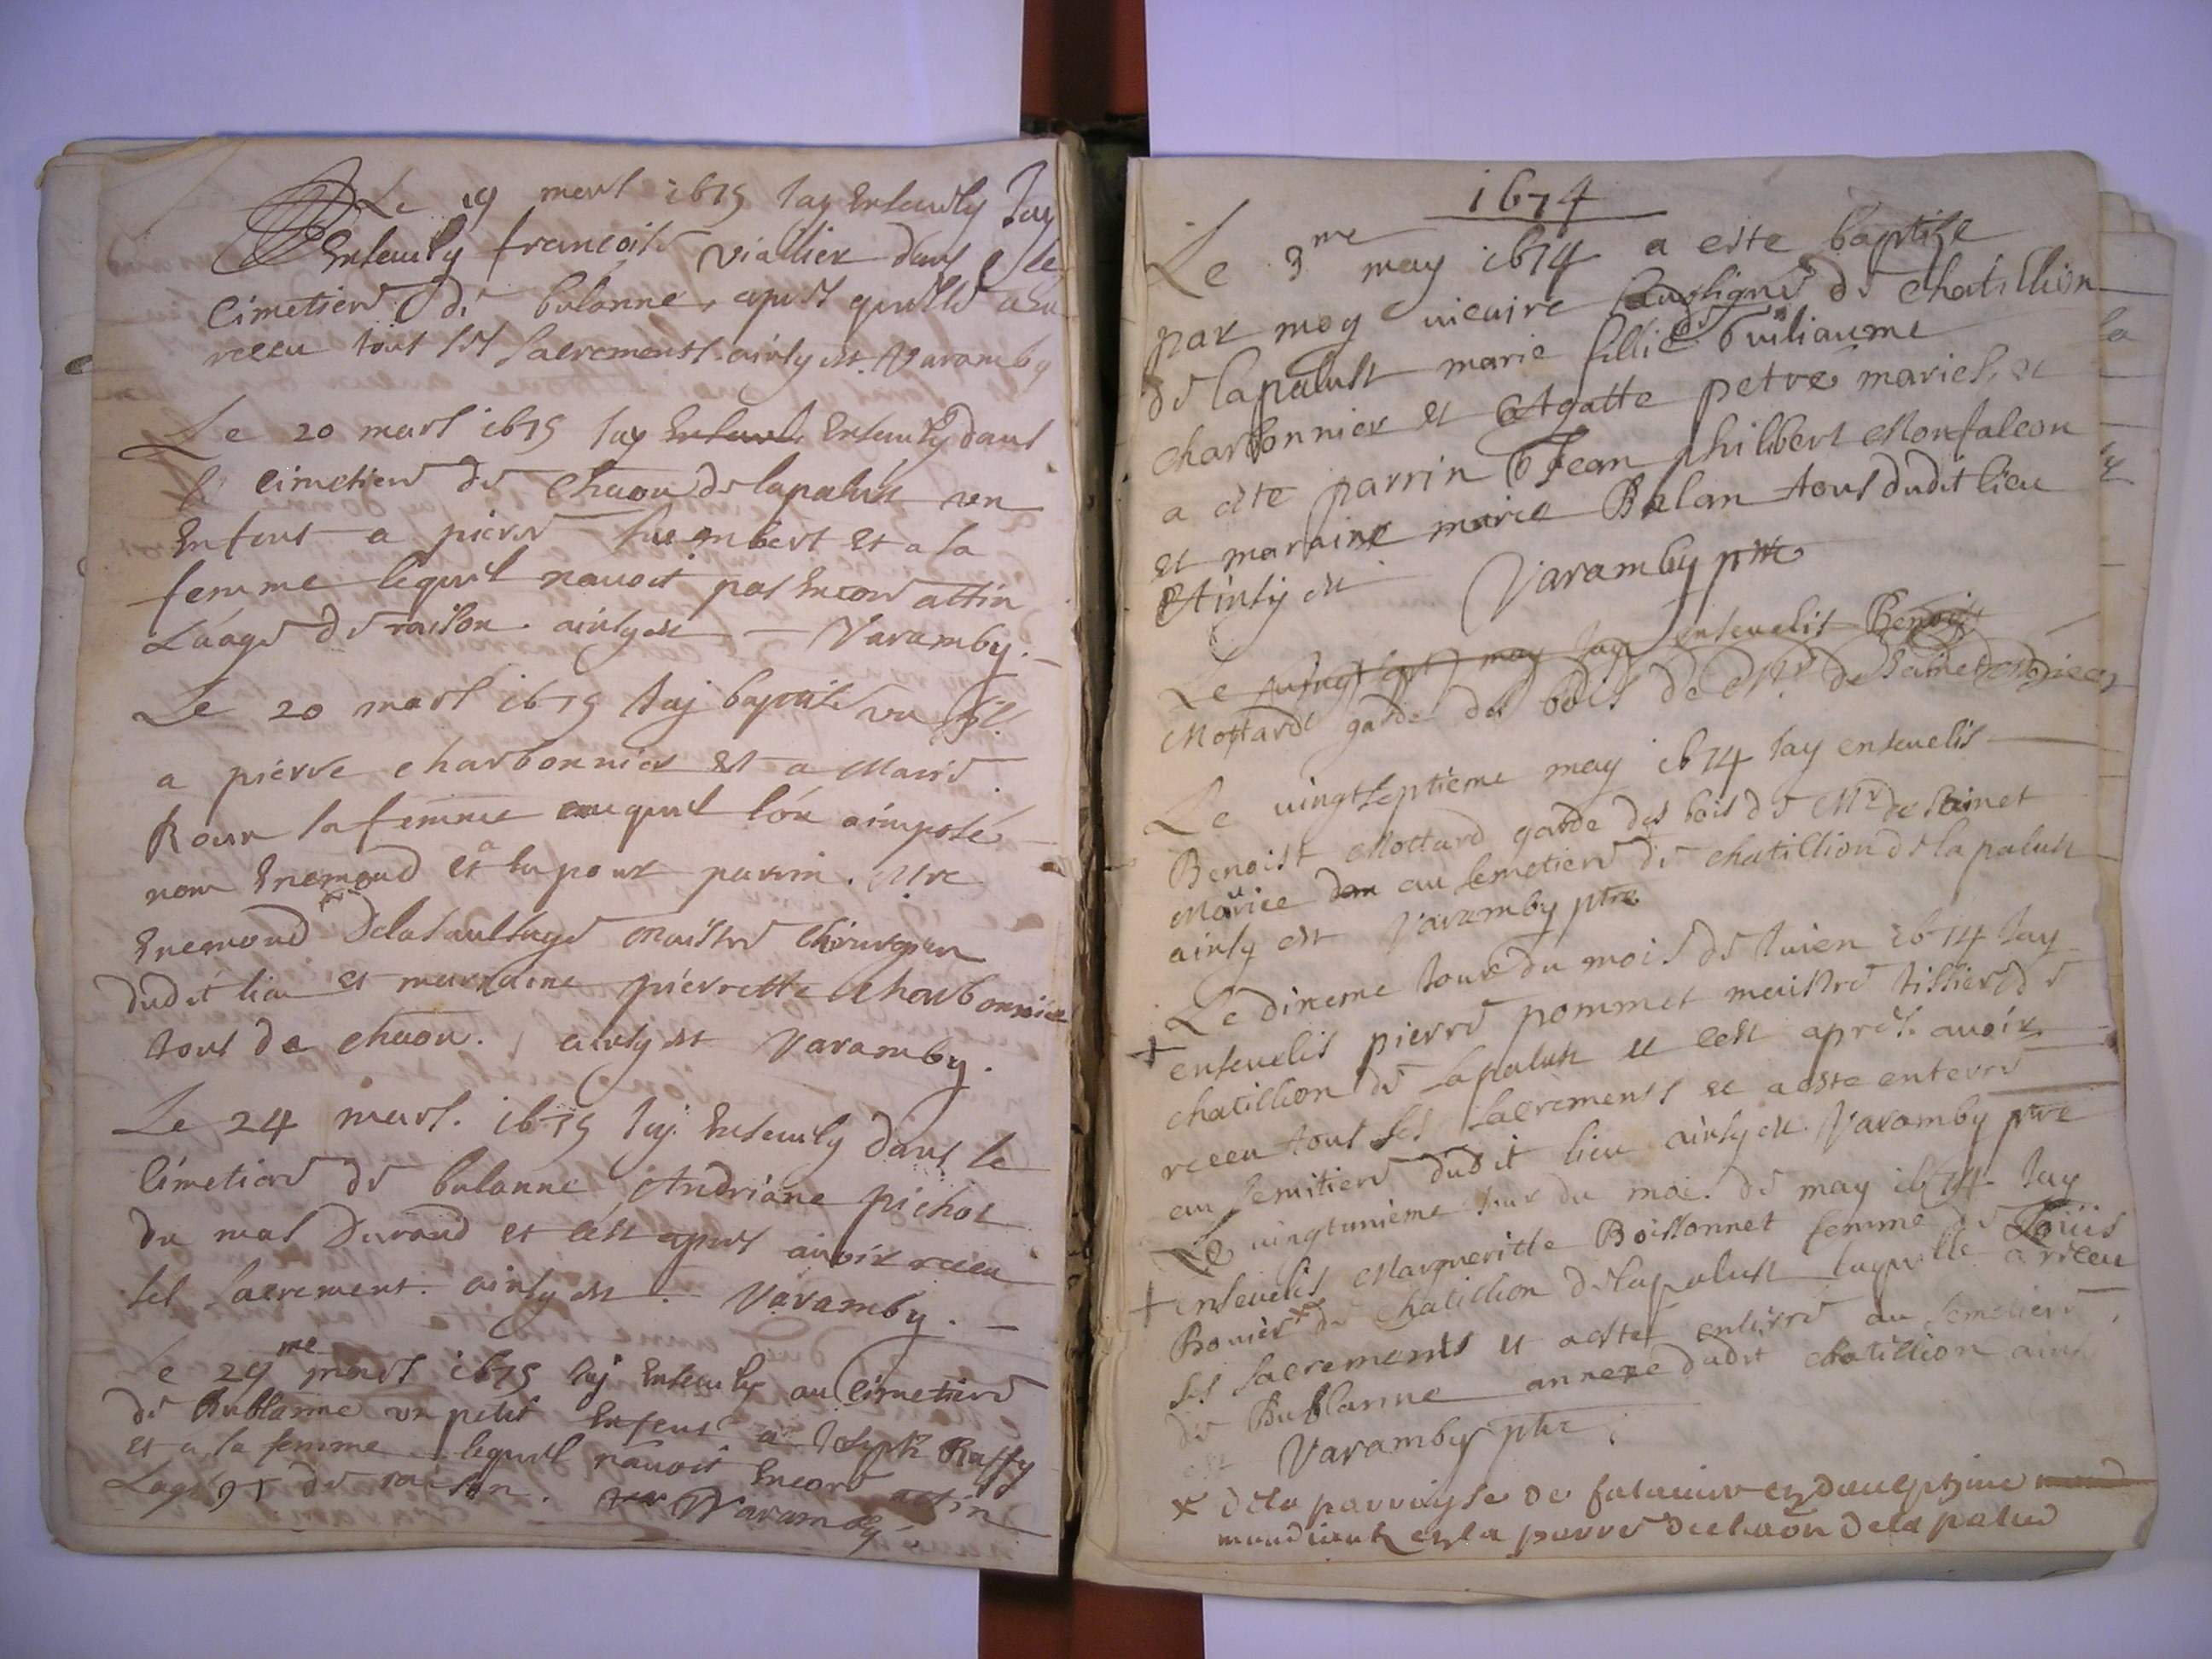 Le 19 mars 1675 Jay Enseuely Jay
Enseuely francoise viallier dans le
Cimetiere de bulanne, apres quelle a
receu tous les sacrements. ainsy est. Varamby
Le 20 mars 1675 Jay Enseuely dans
le cimetiere de Chaon de lapalust un
Enfent a pierre humbert et a sa
femme lequel nauoit pas Encore attin
Laage de raison. ainsy est — Varamby.
Le 20 mars 1675 Jaj baptise un fil
a pierre charbonnier et a Marie
Roux sa femme auquel lon a imposé
nom Enemond et a eu pour parrin. Mre
Enemond Delasaulsaye maistre chirurgien
dudit lieu et marraine pierrette charbonnier
tous de chaon. ainsy est Varamby.
Le 24 mars. 1675 Jaj. Enseuely dans le
Cimetiere de bulanne Andriane pichot
du mas Durand et cest apres auoir receu
les sacrement. ainsy est. Varamby. —
Le 29me mars 1675 Jaj Enseuely au Cimetiere
de Bublanne un petit Enfent a Joseph Raffy
et a sa femme lequel nauoit Encore attin
Lage de raison. Varamby
1674
Le 3me may 1674 a este baptise
par moy vicaire soubsigné de chatillion
de lapalust marie fillie de Guiliaume
charbonnier et Agatte petre mariés, et
a esté parrin Jean philibert Monfalcon
et maraine marie Balan tous dudit lieu
Ainsy est Varamby ptre
Le vingt sept may Jay enseuelit Benoist
Mottard garde des bois de Mr de Sainct
Le vingtseptieme may 1674 Jay enseuelis
Benoist Mottard garde des bois de Mr de Sainct
Maurice dan au semetiere de chatillion de lapalust
ainsy est Varamby ptre
Le dixeme Jour du mois de Juien 1674 Jay
+ enseuelis pierre pommet maistre tissier de
chatillion de Lapalust et cest aprés avoir
receu tout ses sacrements et a este enterré
au semitiere dudit lieu ainsy est. Varamby ptre
Le vingtunieme Jour du mois de may 1674 Jay
+ enseuelis Margueritte Boissonnet femme de Loüis
Bouier x de chatillion de lapalust laquelle a receu
ses sacrements et a esté enterré au semetiere
de Bublanne annexe dudit chatillion ains
est Varamby ptre
x de la parroysse de en daulphine
mandiant en la parre de chaon de la palud